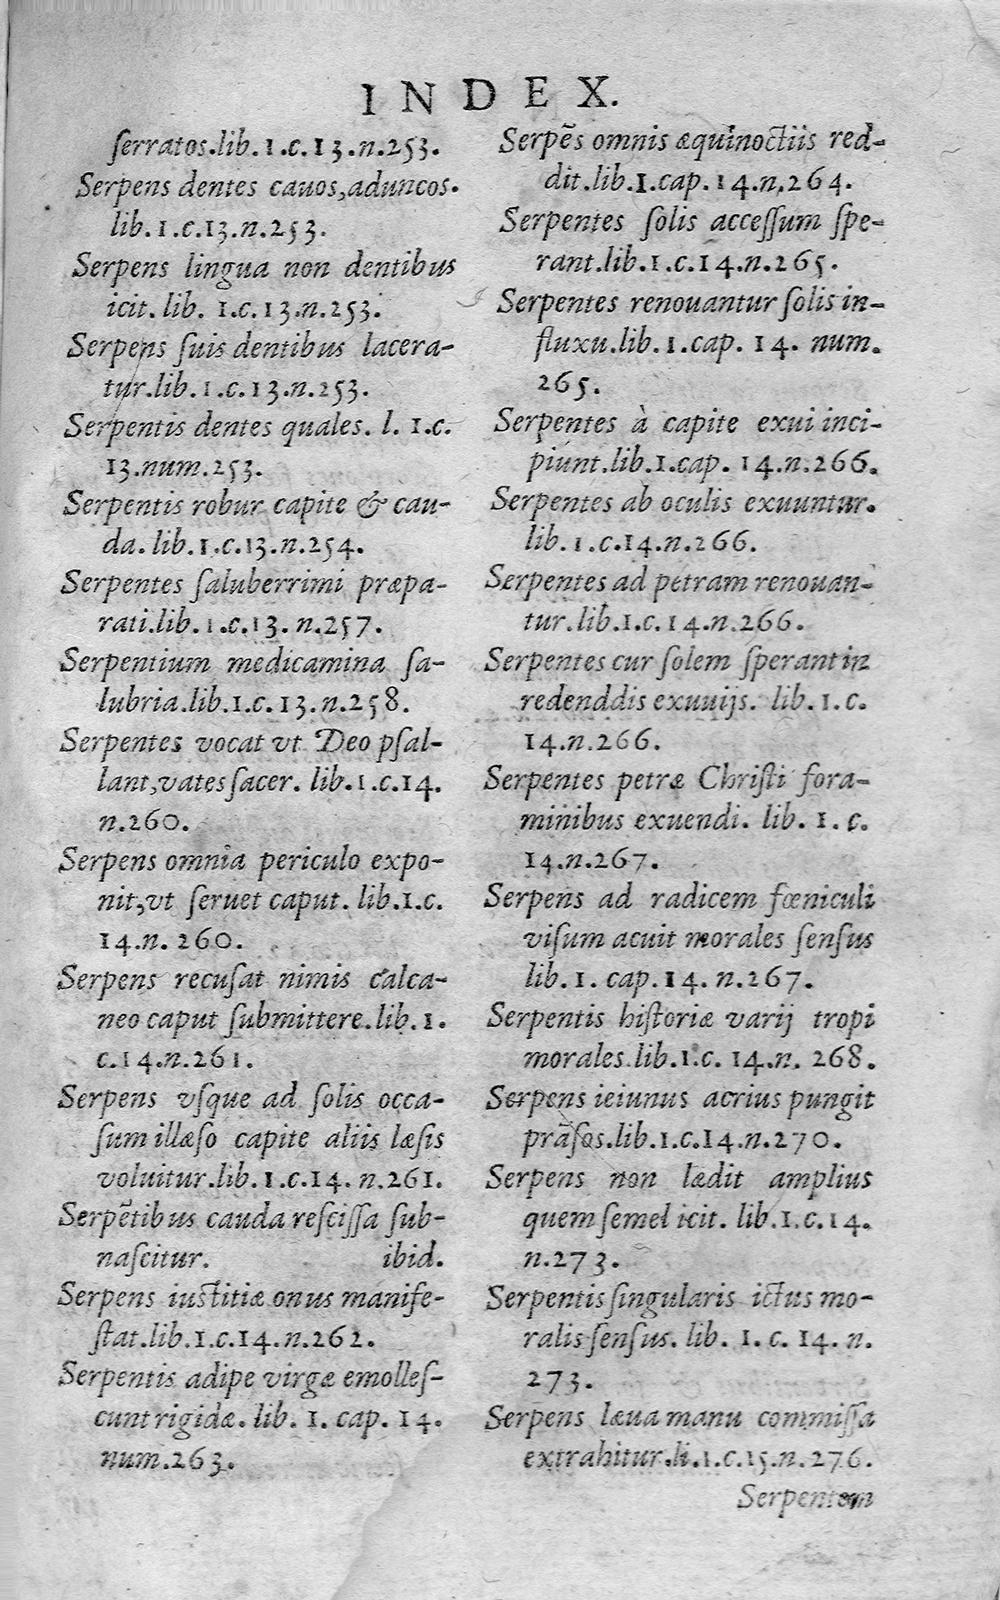 INDEX.
ſerratos.lib.1.c.13.n.253.
Serpens dentes cauos,aduncos.
lib.1.c.13.n.253.
Serpens lingua non dentibus
icit. lib. 1.c.13.n.253.
Serpens ſuis dentibus lacera-
tur.lib.1.c.13.n.253.
Serpentis dentes quales. l. 1.c.
13.num.253.
Serpentis robur capite & cau-
da. lib.1.c.13.n.254.
Serpentes ſaluberrimi præpa-
rati.lib.1.c.13.n.257.
Serpentium medicamina ſa-
lubria.lib.1.c.13.n.258.
Serpentes vocat vt Deo pſal-
lant,vates ſacer. lib.1.c.14.
n.260.
Serpens omnia periculo expo-
nit,vt ſeruet caput. lib.1.c.
14.n.260.
Serpens recuſat nimis calca-
neo caput ſubmittere.lib.1.
c.14.n.261.
Serpens vſque ad ſolis occa-
ſum illæſo capite aliis læſis
voluitur.lib.1.c.14.n.261.
Serpẽtibus cauda reſciſſa ſub-
naſcitur. ibid.
Serpens iuſtitiæ onus manife-
ſtat.lib.1.c.14.n.262.
Serpentis adipe virgæ emolleſ-
cunt rigidæ. lib. 1. cap. 14.
num.263.
Serpẽs omnis æquinoctiis red-
dit.lib.1.cap.14.n.264.
Serpentes ſolis acceſſum ſpe-
rant.lib.1.c.14.n.265.
Serpentes renouantur ſolis in-
fluxu.lib.1.cap. 14. num.
265.
Serpentes à capite exui inci-
piunt.lib.1.cap. 14.n.266.
Serpentes ab oculis exuuntur.
lib.1.c.14.n.266.
Serpentes ad petram renouan-
tur.lib.1.c.14.n.266.
Serpentes cur ſolem ſperant in
redenddis exuuijs. lib.1.c.
14.n.266.
Serpentes petræ Chriſti fora-
minibus exuendi. lib. 1. c.
14.n.267.
Serpens ad radicem fœniculi
viſum acuit morales ſenſus
lib.1. cap.14. n.267.
Serpentis hiſtoriæ varij tropi
morales.lib.1.c. 14.n. 268.
Serpens ieiunus acrius pungit
prãſos.lib.1.c.14.n.270.
Serpens non lædit amplius
quem ſemel icit. lib.1.c.14.
n.273.
Serpentis ſingularis ictus mo-
ralis ſenſus. lib. 1. c. 14. n.
273.
Serpens læua manu commiſſa
extrahitur.li.1.c.15.n.276.
Serpentem